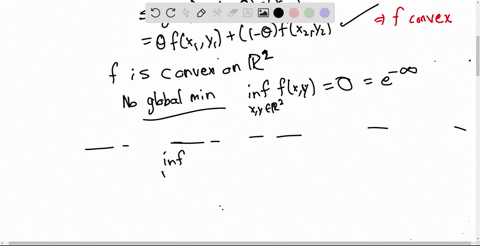 = θ f(x₁, y₁) + (1-θ) f(x₂, y₂)
⇒ f convex
f is convex on ℝ²
No global min inf f(x,y) = 0 = e^{-∞}
x,y ∈ ℝ²
inf